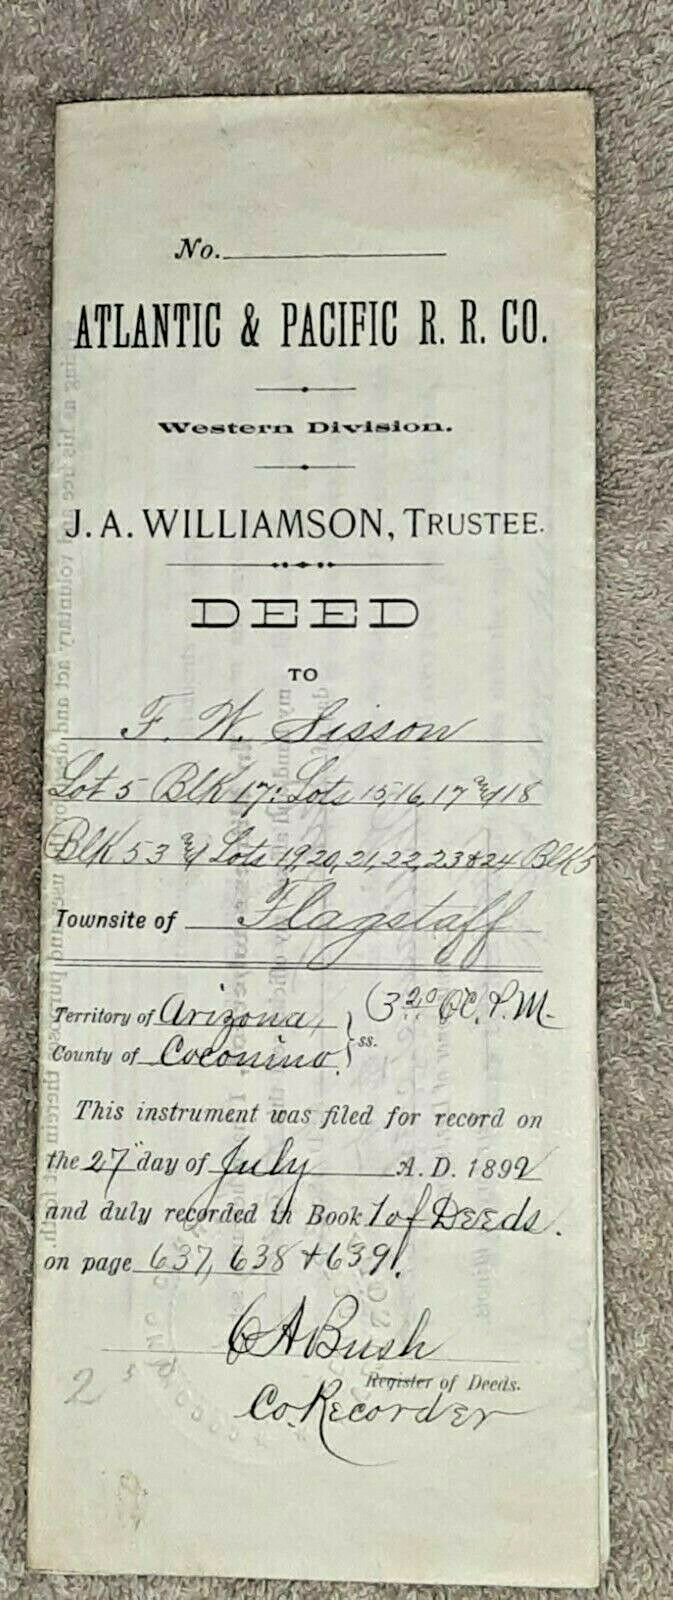 No.
ATLANTIC & PACIFIC R. R. CO.
Western Division.
J. A. WILLIAMSON, TRUSTEE.
DEED
TO
F. W. Sisson
Lot 5 Blk 17: Lots 15, 16, 17 and 18
Blk 53 and Lots 19, 20, 21, 22, 23 & 24 Blk 5
Townsite of Flagstaff
Territory of Arizona, } ss. (3 20 P.M.
County of Coconino.
This instrument was filed for record on
the 27" day of July A. D. 1892
and duly recorded in Book 1 of Deeds.
on page 637, 638 & 639.
C A Bush
Register of Deeds.
Co. Recorder
2